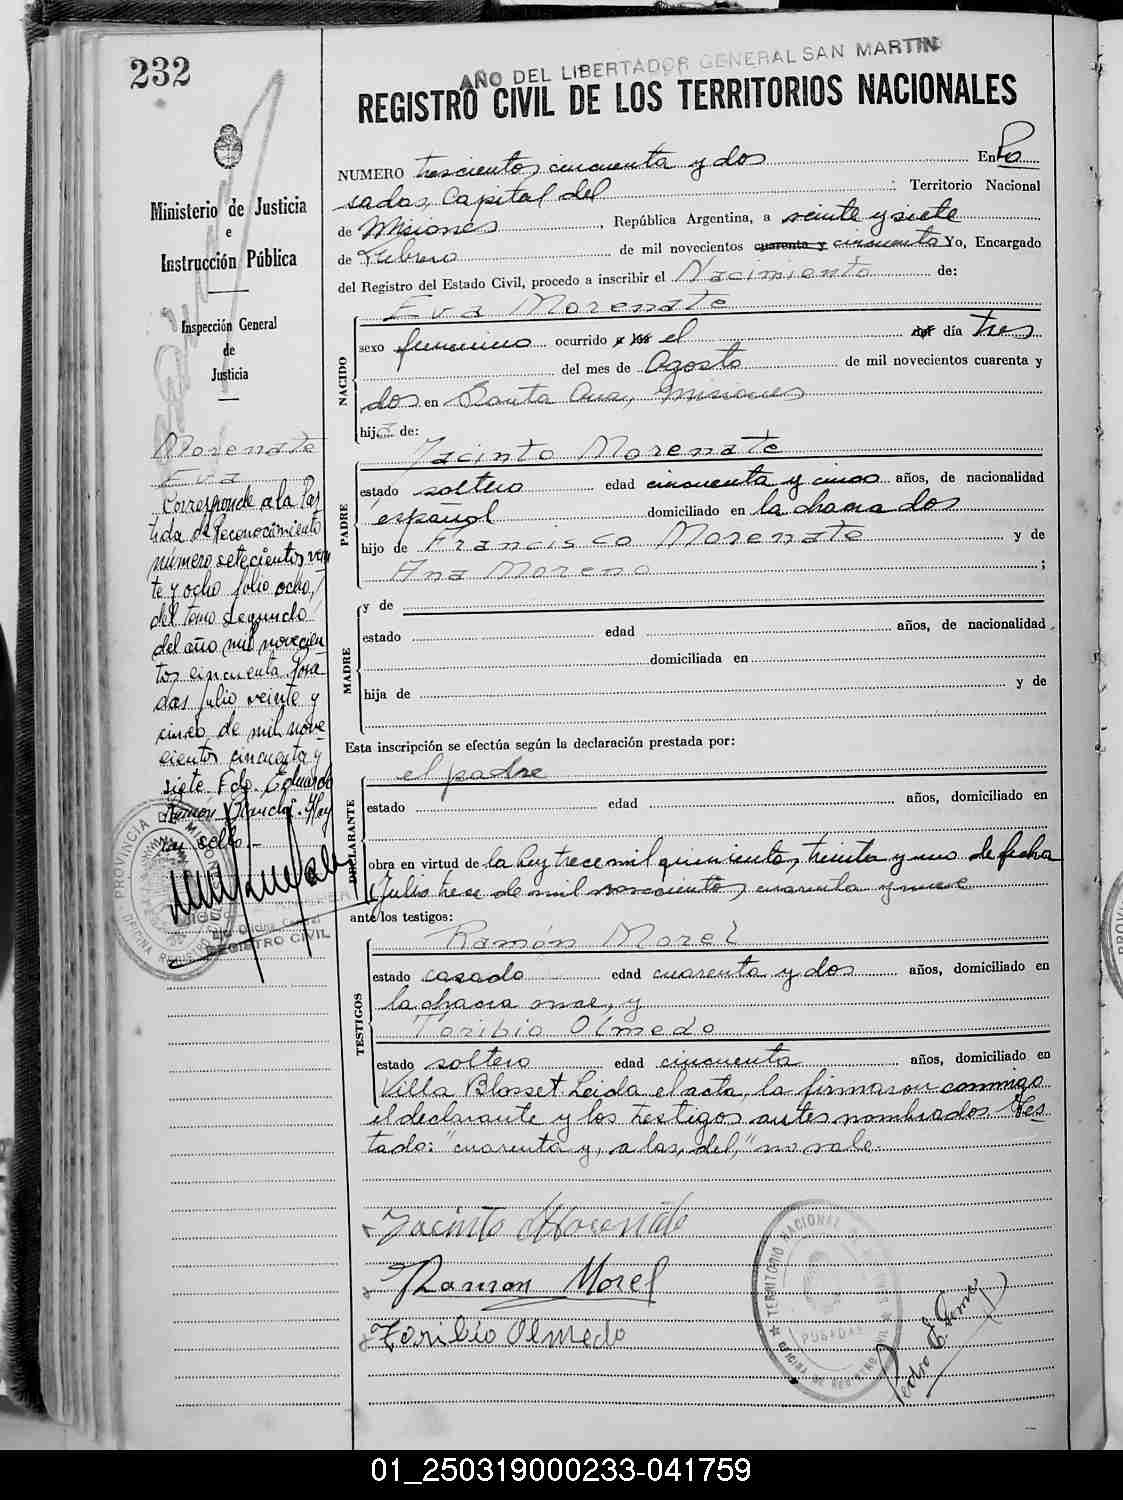 232
AÑO DEL LIBERTADOR GENERAL SAN MARTIN
REGISTRO CIVIL DE LOS TERRITORIOS NACIONALES
Ministerio de Justicia
e
Instrucción Pública
Inspección General
de
Justicia
Morenate
Eva
Corresponde a la Par
tida de Reconocimiento
número setecientos vein
te y ocho folio ocho,
del tomo segundo
del año mil novecien
tos cincuenta. Posa
das julio veinte y
cinco de mil nove
cientos cincuenta y
siete. Fdo. Eduardo
Ramón Hay
un sello.-
PROVINCIA DE MISIONES
OFICINA REGISTRO
REGISTRO CIVIL
NUMERO trescientos cincuenta y dos En Po
sadas, Capital del Territorio Nacional
de Misiones, República Argentina, a veinte y siete
de Febrero de mil novecientos cuarenta y cincuenta Yo, Encargado
del Registro del Estado Civil, procedo a inscribir el Nacimiento de:
Eva Morenate
NACIDO
sexo femenino ocurrido a las el del día tres
del mes de Agosto de mil novecientos cuarenta y
dos en Santa Ana, Misiones
hija de:
Jacinto Morenate
PADRE
estado soltero edad cincuenta y cinco años, de nacionalidad
español domiciliado en la chacra dos
hijo de Francisco Morenate y de
Ana Moreno ;
MADRE
y de
estado edad años, de nacionalidad
domiciliada en
hija de y de
Esta inscripción se efectúa según la declaración prestada por:
el padre
DECLARANTE
estado edad años, domiciliado en
obra en virtud de la ley trece mil quinientos, treinta y uno de fecha
Julio trece de mil novecientos, cuarenta y nueve
ante los testigos:
Ramón Morel
TESTIGOS
estado casado edad cuarenta y dos años, domiciliado en
la chacra once, y
Toribio Olmedo
estado soltero edad cincuenta años, domiciliado en
Villa Blosset Leida el acta, la firmaron conmigo
el declarante y los testigos antes nombrados. Tes-
tado: "cuarenta y, a las, del," no vale.
Jacinto Morenate
Ramon Morel
Toribio Olmedo
TERRITORIO NACIONAL DE MISIONES
POSADAS
OFICINA DE REGISTRO CIVIL
Pedro E. Gomez
01_250319000233-041759